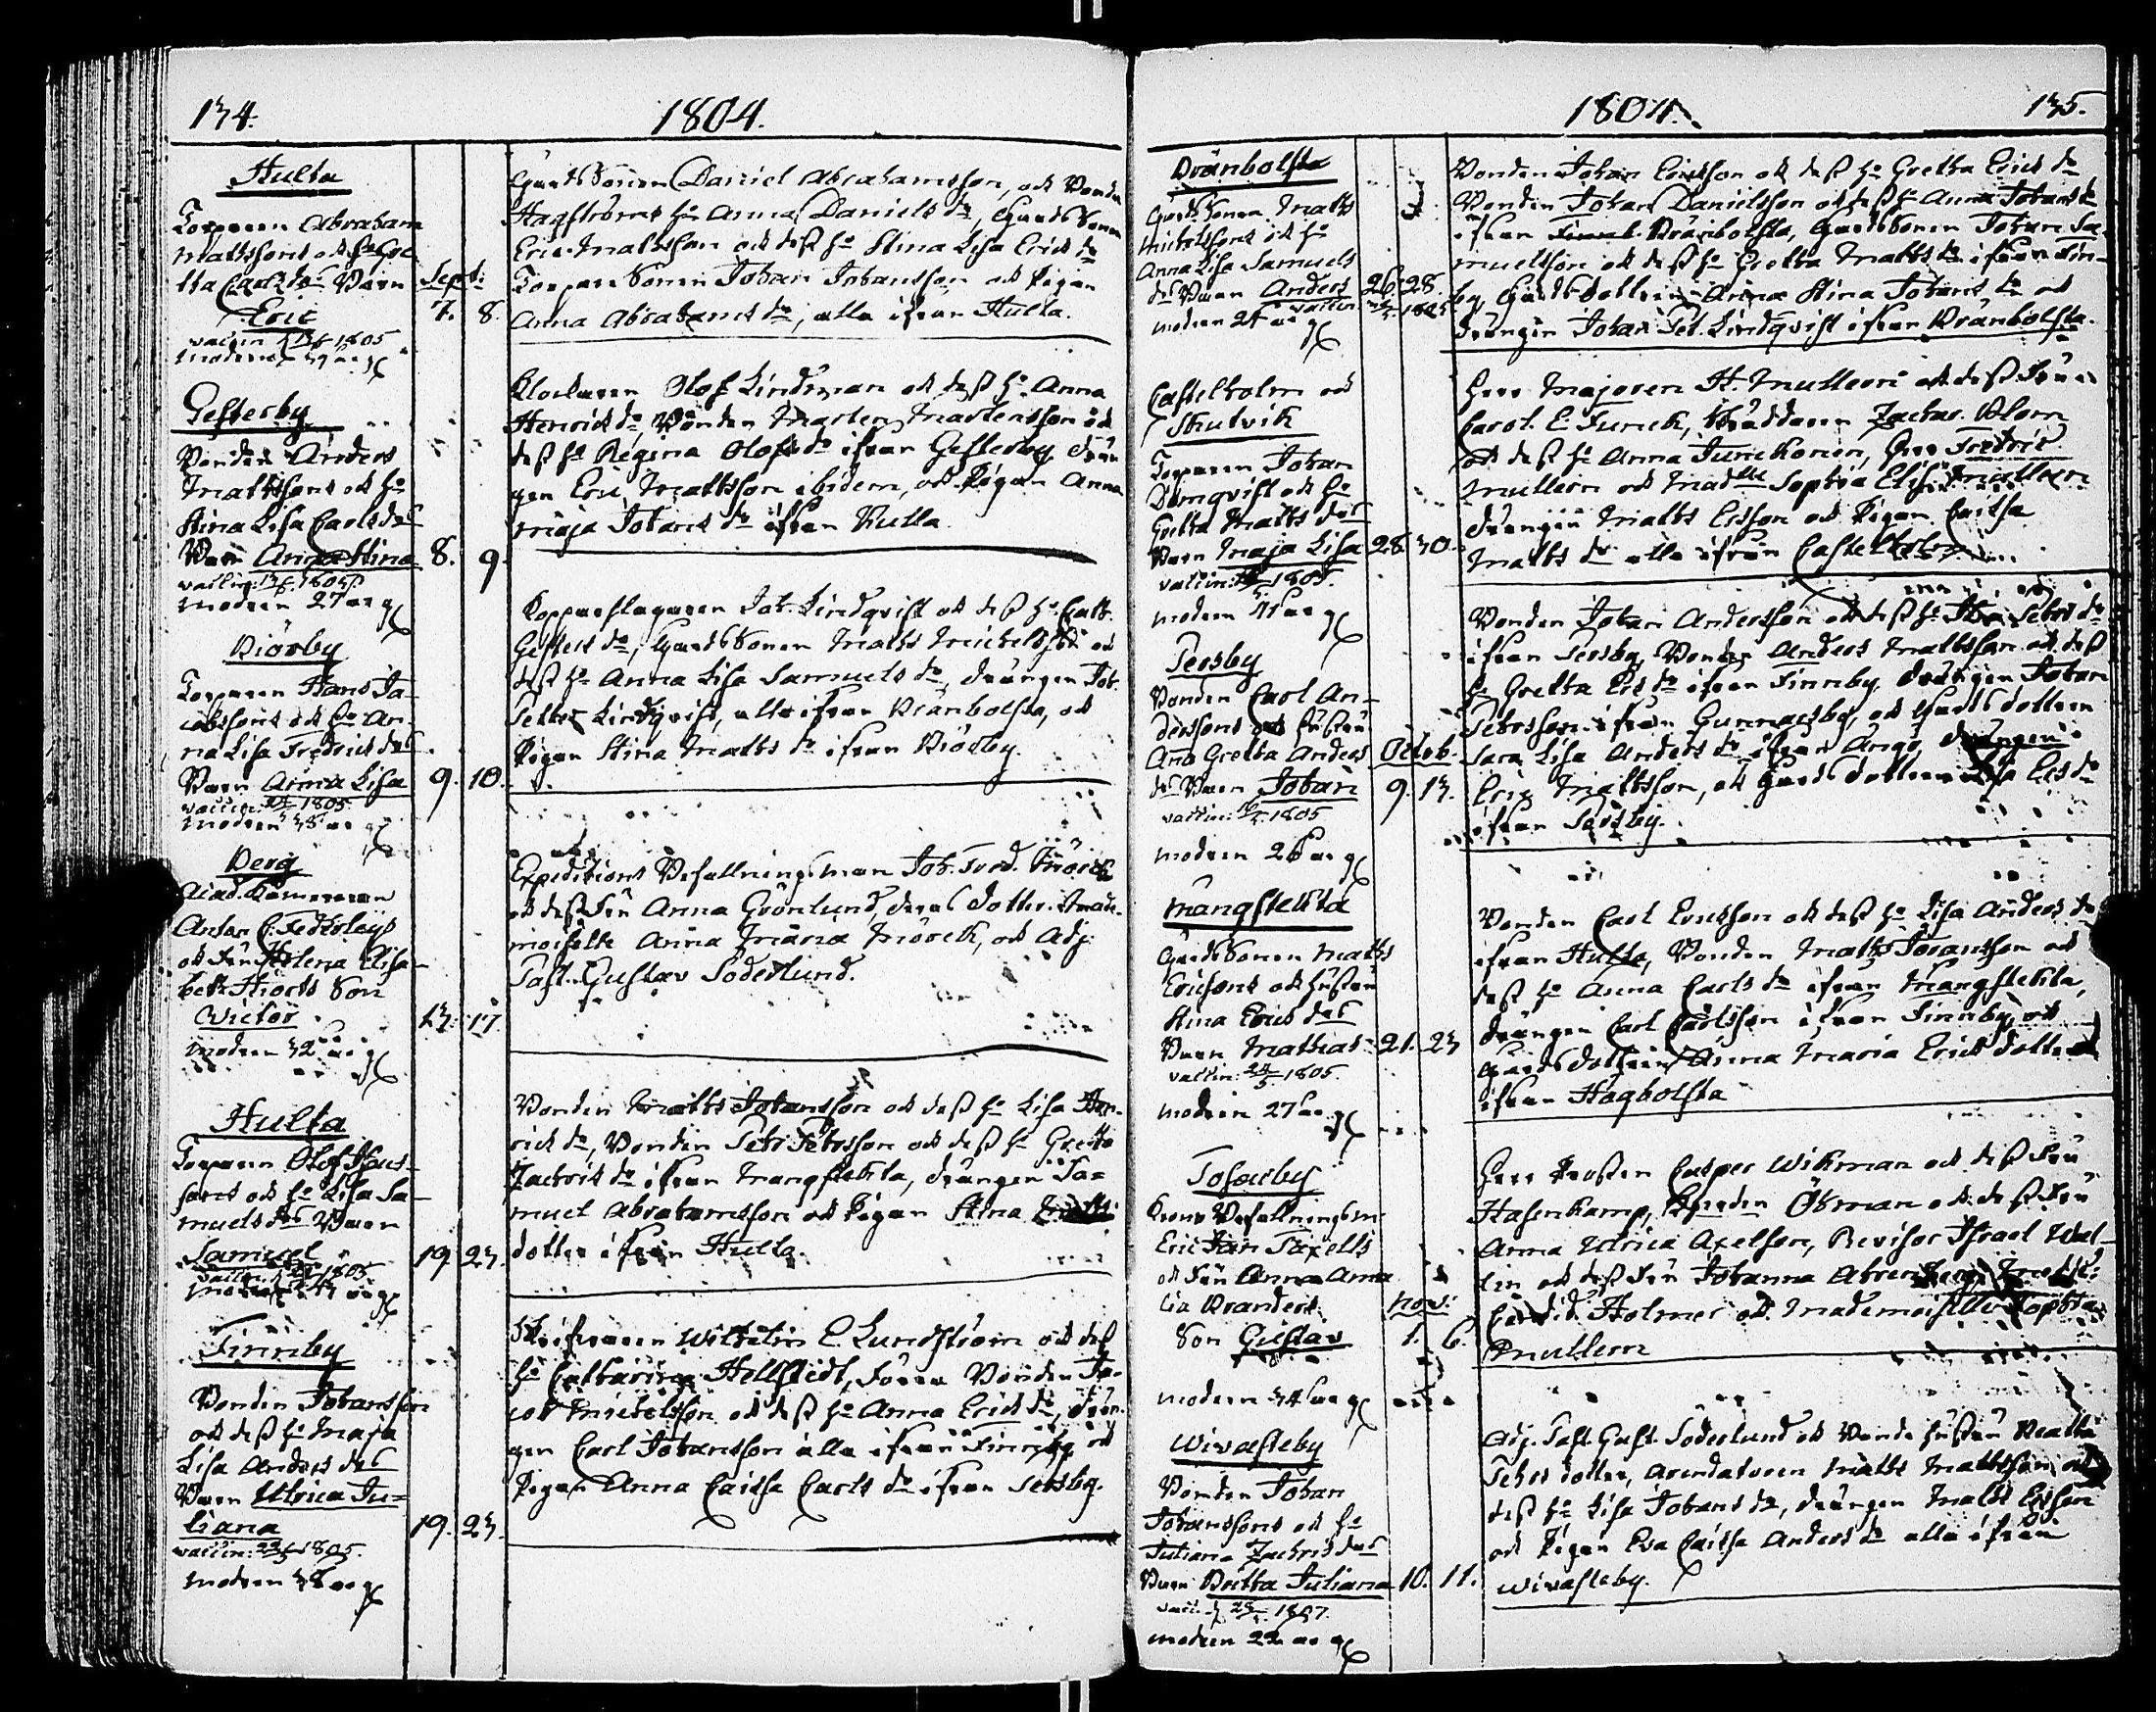 134.
1804.
Hulta
Torparen Abraham
Mathssons och hu Gre
tta Carls drs Barn
Sept:
Eric
7. 8.
vaccin 1805
modren år gl
Gårds Sonen Daniel Abrahamsson, och Bonden
Hagströms hu Anna Daniels dr, Gårds Sonen
Eric Mathsson och dess hu Stina Lisa Erics dr
Torpare Sonen Johan Johansson och Pigan
Anna Abrahams dr, alla ifrån Hulta.
Gesterby
Bonden Anders
Mathssons och hu
Stina Lisa Carls drs
Barn Anna Stina
8. 9.
vaccin: 1805
modren 27 år gl
Klockaren Olof Lindman och dess hu Anna
Henrics dr, Bonden Morten Mortensson och
dess hu Regina Olofs dr ifrån Gesterby, drän
gen Eric Mathsson ibidem, och Pigan Anna
Maja Johans dr ifrån Kulla
Biörby
Torparen Hans Ja-
cobssons och hu An-
na Lisa Fredrics drs
Barn Anna Lisa
9. 10.
vaccin: 1805
modren 38 år gl
Kopparslagaren Joh. Lindqvist och dess hu Cath.
Gesters dr, Gårds Sonen Maths Michelsson och
dess hu Anna Lisa Samuels dr, drängen Joh.
Petter Lindqvist, alla ifrån Bränbolsta, och
Pigan Stina Maths dr ifrån Biörby.
Berg
Acad. Kamreraren
och Fru Helena Elisa-
beth Hiorts Son
Victor
13. 17.
modren 32 år gl
Expeditions Befallningsman Joh. Fred. Mörck
och dess Fru Anna Grönlund, deras dotter Made-
moiselle Anna Maria Mörck, och Adj.
Past. Gustav Söderlund.
Hulta
Torparen Olof Hans-
sons och hu Lisa Sa-
muels drs Barn
Samuel
19. 23.
vaccin: 1805
modren år gl
Bonden Maths Johansson och dess hu Lisa Hen-
rics dr, Bonden Petr Petrsson och dess hu Gretta
Zachris dr ifrån Mangslekila, drängen Sa-
muel Abrahamsson och Pigan Stina
dotter ifrån Hulta.
Finnby
Bonden Johansson
och dess hu Maja
Lisa Anders drs
Barn Ulrica Ju-
liana
19. 23.
vaccin: 1805.
modren 38 år gl
Skrifvaren Wilhelm E. Lundström och dess
hu Catharina Hellstedt, Förra Bonden Ja-
cob Michelsson och dess hu Anna Erics dr, drän-
gen Carl Johansson alla ifrån Finnby och
Pigan Anna Caisa Carls dr ifrån Persby.
1804.
135.
Bränbolsta
Gårds Sonen Maths
Michelssons och hu
Anna Lisa Samuels
drs Barn Anders
26. 28.
vaccin 1805
modren 24 år gl
Bonden Johan Ericsson och dess hu Gretta Erics dr
Bonden Johan Danielsson och dess hu Anna Johans dr
ifrån Bränbolsta, Gårds Sonen Johan Sa-
muelsson och dess hu Gretta Maths dr ifrån Fin-
by, Gårds dottren Anna Stina Johans dr och
drängen Johan Pet. Lindqvist ifrån Bränbolsta.
Castelholm och
Slutvik
Torparen Johan
Dömqvist och hu
Gretta Maths drs
Barn Maja Lisa
28. 30.
vaccin: 1805.
modren 41 år gl
Herr Majoren H. Mullern och dess Fru
Carol. E. Furuck, Skräddaren Zachar. Blom
och dess hu Anna Furuckonen, Herr Fredric
Mullern och Madlle Sophia Elis. Mullern
drängen Maths Ersson och Pigan Caisa
Maths dr alla ifrån Castelholm
Persby
Bonden Carl An-
derssons och hustru
Ana Gretta Anders
Octob.
drs Barn Johan
9. 13.
vaccin: 1805
modren 26 år gl
Bonden Johan Andersson och dess hu Petrs dr
ifrån Persby, Bonden Anders Mathsson och dess
hu Gretta Ers dr ifrån Finnby, drängen Johan
Petersson ifrån Gunnarsby, och Gårds dottren
Sara Lisa Anders dr ifrån Ångö, drängen
Eric Mathsson, och Gårds dottren Lisa Ers dr
ifrån Persby.
Mangslekila
Gårds Sonen Maths
Ericsons och hustru
Stina Erics drs
Barn Mathias
21. 23
vaccin: 24/5 1805.
modren 27 år gl
Bonden Carl Ericsson och dess hu Lisa Anders dr
ifrån Hulta, Bonden Maths Johansson och
dess hu Anna Carls dr ifrån Mangslekila,
drängen Carl Carlsson ifrån Finnby, och
Gårds dottren Anna Maria Erics dotter
ifrån Hagbolsta
Tosarby
Krono Befallningsm
Eric Jan Taxells
och Fru Anna Ama
lia Branders
Nov:
Son Gustav
1. 6.
modren 34 år gl
Herr Prosten Casper Wikman och dess Fru
Hasenkamp, Öhman och dess Fru
Anna Ulrica Axelson, Revisor Israel Wal-
lin och dess Fru Johanna
Candid. Holmer och Mademoiselle Sophia
Mullern
Wivasteby
Bonden Johan
Johanssons och hu
Juliana Zachris drs
Barn Britta Juliana
10. 11.
vacc. 1807.
modren 22 år gl
Adj. Past. Gust. Söderlund och Bonde hustru Beatta
Peters dotter, Arendatoren Maths Mathsson och
dess hu Lisa Johans dr, drängen Maths Ersson
och Pigan Eva Caisa Anders dr alla ifrån
Wivasteby.